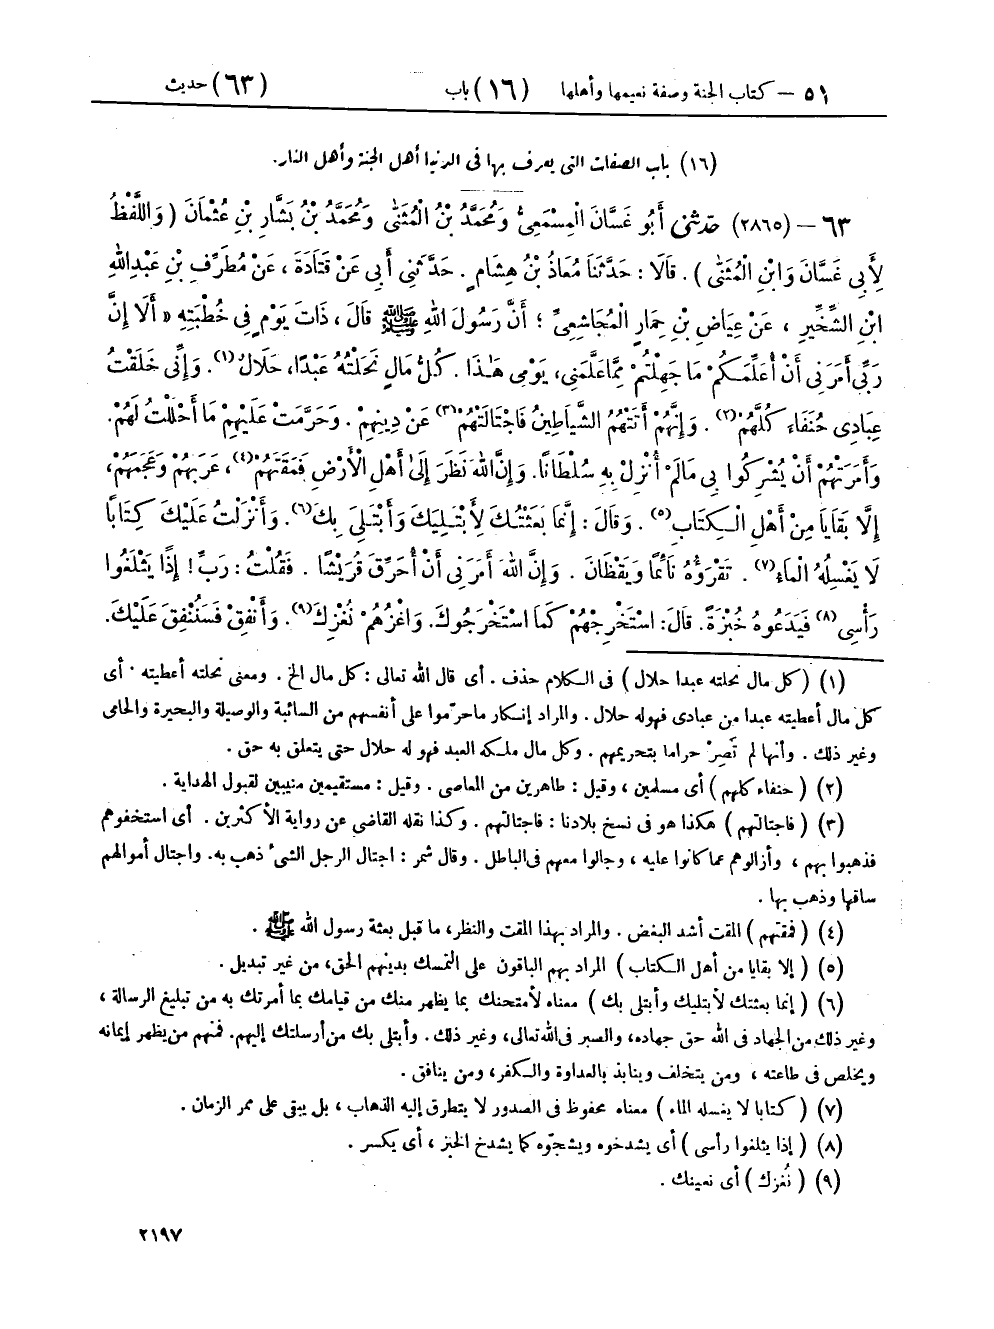 ٥١ – كتاب الجنة وصفة نعيمها وأهلها (١٦) باب (٦٣) حديث
(١٦) باب الصفات التى يعرف بها فى الدنيا أهل الجنة وأهل النار.
٦٣ – (٢٨٦٥) حَدَّثَنِي أَبُو غَسَّانَ الْمِسْمَعِيُّ وَمُحَمَّدُ بْنُ الْمُثَنَّى وَمُحَمَّدُ بْنُ بَشَّارِ بْنِ عُثْمَانَ (وَاللَّفْظُ
لِأَبِي غَسَّانَ وَابْنِ الْمُثَنَّى). قَالَا: حَدَّثَنَا مُعَاذُ بْنُ هِشَامٍ. حَدَّثَنِي أَبِي عَنْ قَتَادَةَ، عَنْ مُطَرِّفِ بْنِ عَبْدِاللهِ
ابْنِ الشِّخِّيرِ، عَنْ عِيَاضِ بْنِ حِمَارٍ الْمُجَاشِعِيِّ؛ أَنَّ رَسُولَ اللهِ ﷺ قَالَ، ذَاتَ يَوْمٍ فِي خُطْبَتِهِ «أَلَا إِنَّ
رَبِّي أَمَرَنِي أَنْ أُعَلِّمَكُمْ مَا جَهِلْتُمْ مِمَّا عَلَّمَنِي، يَوْمِي هَٰذَا. كُلُّ مَالٍ نَحَلْتُهُ عَبْدًا، حَلَالٌ(١). وَإِنِّي خَلَقْتُ
عِبَادِي حُنَفَاءَ كُلَّهُمْ(٢). وَإِنَّهُمْ أَتَتْهُمُ الشَّيَاطِينُ فَاجْتَالَتْهُمْ(٣) عَنْ دِينِهِمْ. وَحَرَّمَتْ عَلَيْهِمْ مَا أَحْلَلْتُ لَهُمْ.
وَأَمَرَتْهُمْ أَنْ يُشْرِكُوا بِي مَالَمْ أُنْزِلْ بِهِ سُلْطَانًا. وَإِنَّ اللهَ نَظَرَ إِلَىٰ أَهْلِ الْأَرْضِ فَمَقَتَهُمْ(٤)، عَرَبَهُمْ وَعَجَمَهُمْ،
إِلَّا بَقَايَا مِنْ أَهْلِ الْكِتَابِ(٥). وَقَالَ: إِنَّمَا بَعَثْتُكَ لِأَبْتَلِيَكَ وَأَبْتَلِيَ بِكَ(٦). وَأَنْزَلْتُ عَلَيْكَ كِتَابًا
لَا يَغْسِلُهُ الْمَاءُ(٧). تَقْرَؤُهُ نَائِمًا وَيَقْظَانَ. وَإِنَّ اللهَ أَمَرَنِي أَنْ أُحَرِّقَ قُرَيْشًا. فَقُلْتُ: رَبِّ! إِذًا يَثْلَغُوا
رَأْسِي(٨) فَيَدَعُوهُ خُبْزَةً. قَالَ: اسْتَخْرِجْهُمْ كَمَا اسْتَخْرَجُوكَ. وَاغْزُهُمْ نُغْزِكَ(٩). وَأَنْفِقْ فَسَنُنْفِقَ عَلَيْكَ.
(١) (كل مال نحلته عبدا حلال) فى الكلام حذف. أى قال الله تعالى: كل مال الخ. ومعنى نحلته أعطيته. أى
كل مال أعطيته عبدا من عبادى فهو له حلال. والمراد إنكار ما حرّموا على أنفسهم من السائبة والوصيلة والبحيرة والحامى
وغير ذلك. وأنها لم تَصِرْ حراما بتحريمهم. وكل مال ملكه العبد فهو له حلال حتى يتعلق به حق.
(٢) (حنفاء كلهم) أى مسلمين، وقيل: طاهرين من المعاصى. وقيل: مستقيمين منيبين لقبول الهداية.
(٣) (فاجتالتهم) هكذا هو فى نسخ بلادنا: فاجتالتهم. وكذا نقله القاضى عن رواية الأكثرين. أى استخفوهم
فذهبوا بهم، وأزالوهم عما كانوا عليه، وجالوا معهم فى الباطل. وقال شمر: اجتال الرجل الشىءَ ذهب به. واجتال أموالهم
ساقها وذهب بها.
(٤) (فمقتهم) المقت أشد البغض. والمراد بهذا المقت والنظر، ما قبل بعثة رسول الله ﷺ.
(٥) (إلا بقايا من أهل الكتاب) المراد بهم الباقون على التمسك بدينهم الحق، من غير تبديل.
(٦) (إنما بعثتك لأبتليك وأبتلى بك) معناه لأمتحنك بما يظهر منك من قيامك بما أمرتك به من تبليغ الرسالة،
وغير ذلك من الجهاد فى الله حق جهاده، والصبر فى الله تعالى، وغير ذلك. وأبتلى بك من أرسلتك إليهم. فمنهم من يظهر إيمانه
ويخلص فى طاعته، ومن يتخلف وينابذ بالعداوة والكفر، ومن ينافق.
(٧) (كتابا لا يغسله الماء) معناه محفوظ فى الصدور لا يتطرق إليه الذهاب، بل يبقى على ممر الزمان.
(٨) (إذا يثلغوا رأسى) أى يشدخوه ويشجّوه كما يشدخ الخبز، أى يكسر.
(٩) (نُغزك) أى نعينك.
٢١٩٧